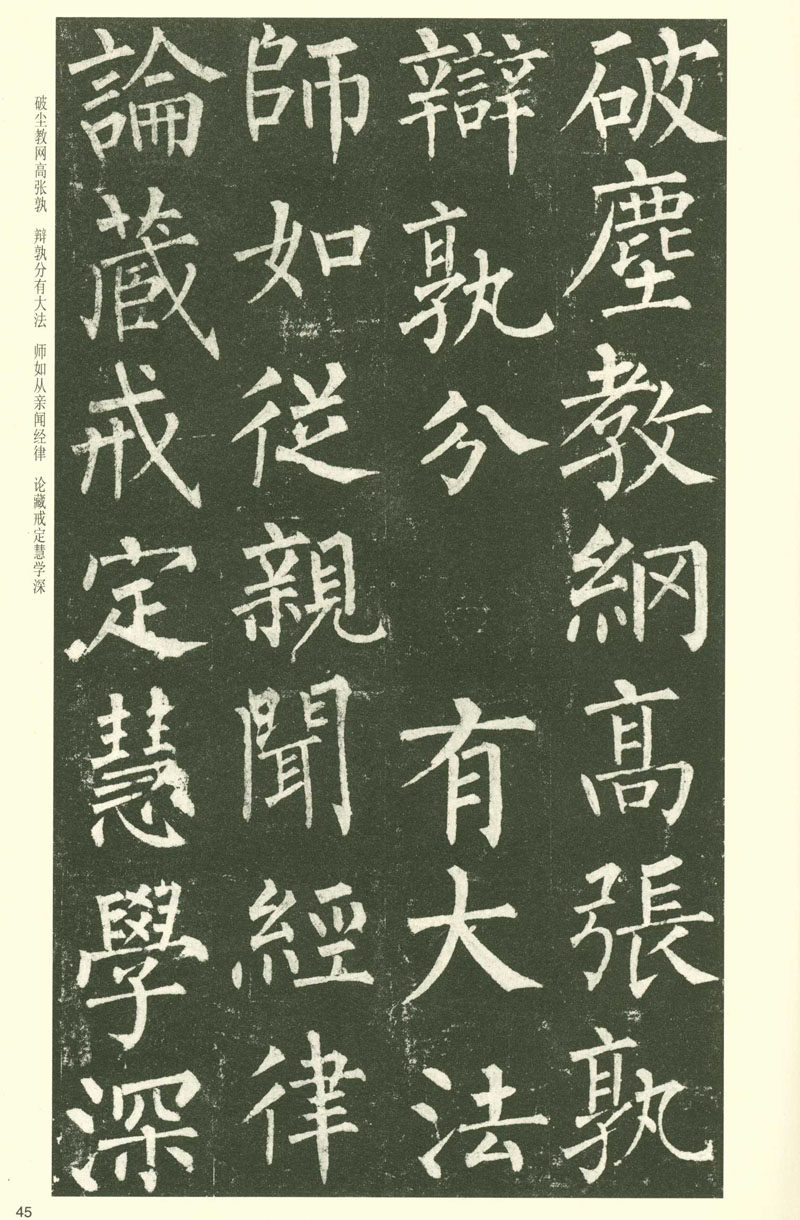 破塵教網高張孰
辯孰分 有大法
師如從親聞經律
論藏戒定慧學深
破尘教网高张孰 辩孰分有大法 师如从亲闻经律 论藏戒定慧学深
45